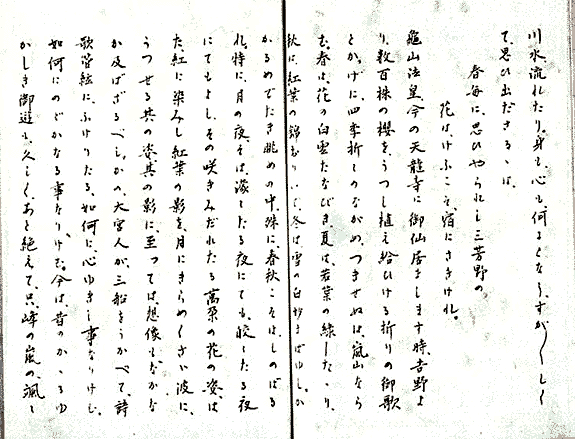 川水流れたり。身も、心も、何となう、すが〱しく
て、思ひ出ださるゝは、
春毎に、思ひやられし三芳野の
花は、けふこそ、宿にさきけれ。
龜山法皇、今の天龍寺に御仙居まします時、吉野よ
り、數百株の櫻をうつし植ゑ給ひける折りの御歌
とかけに、四季折〻のながめ、つきせぬは、嵐山なら
む。春は、花の白雲たなびき、夏は、若葉の緑したゝり、
秋は、紅葉の錦おりいで、冬は、雪の白妙さばゆし。か
かるめでたき眺めの中、殊に、春秋こそは、しのばる
れ。特に、月の夜は、朦したる夜にても、皎したる夜
にてもよし。その咲きみだれたる萬朶の花の姿は
た、紅に染みし紅葉の影を、月にきらめくさゝ波に、
うつせる其の姿、其の影に、至つては、想像も、なかな
か及ばざるべし。かの、大宮人が、三船をうかべて、詩
歌管絃に、ふけりたる、如何に、心ゆきし事なりけむ。
如何にのどかなる事なりけむ。今は、昔のかゝるゆ
かしき御遊も、久しく、あと絶えて、只、峰の嵐の、颯〻